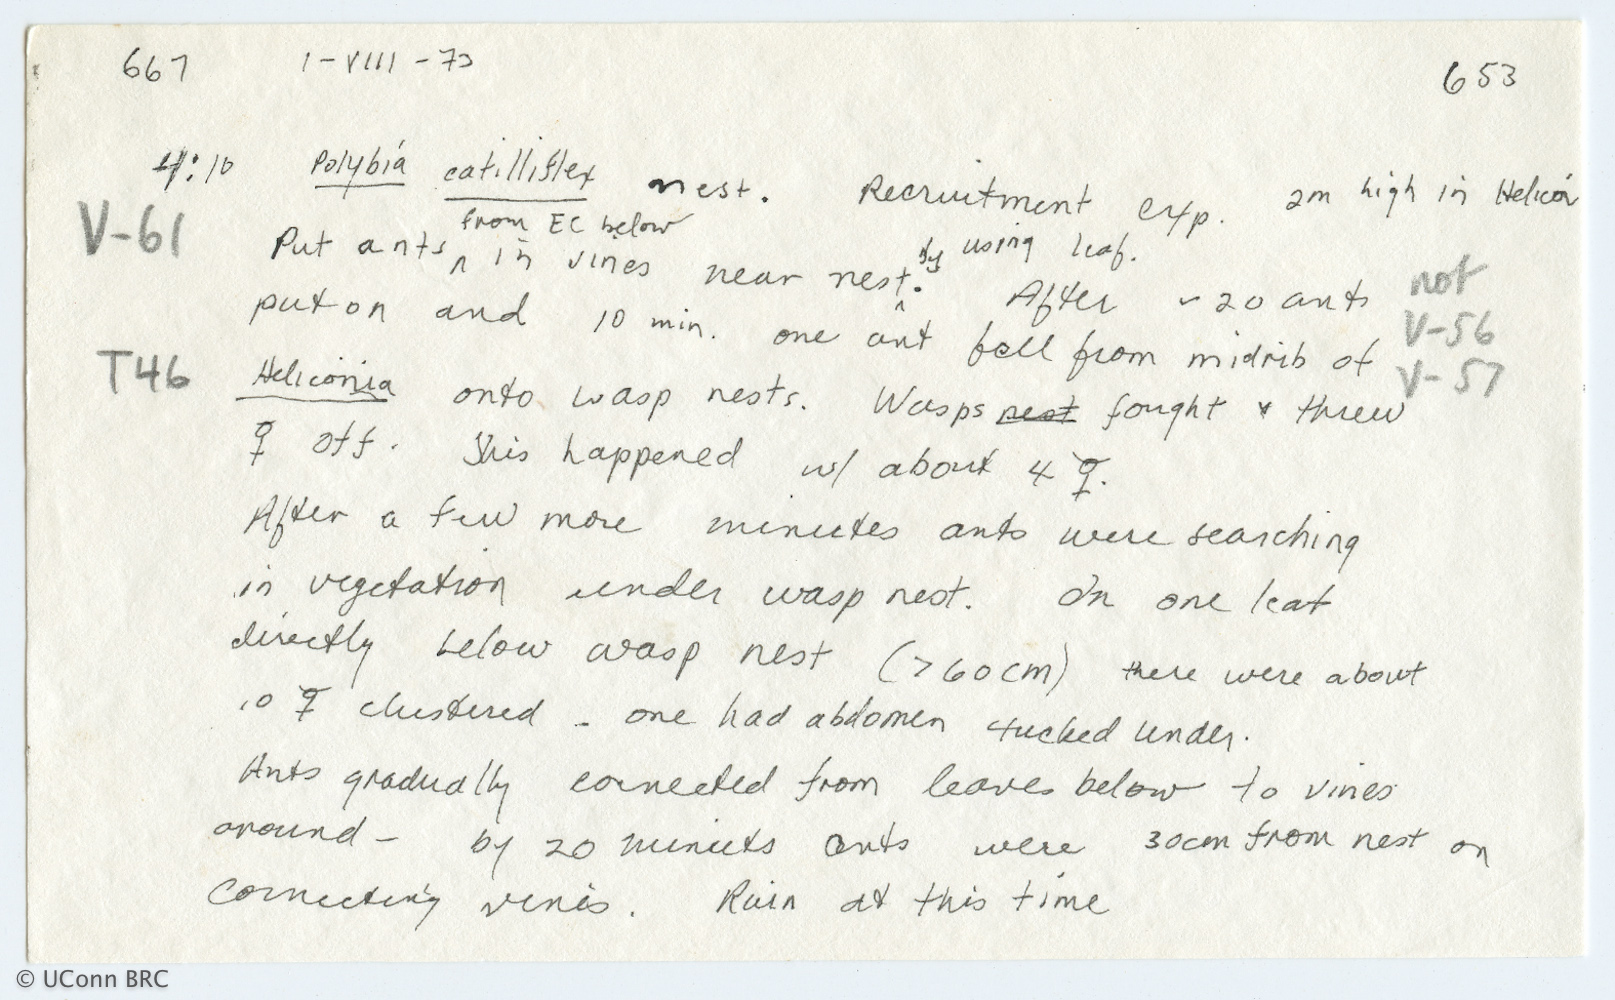 667 1-VIII-73 653
4:10 Polybia catillifex nest. Recruitment exp. 2m high in Helicon
V-61
from EC below
Put ants ^ in vines near nest. ^ by using leaf. After ~20 ants
not
put on and 10 min. one ant fell from midrib of
V-56
T46 Heliconia onto wasp nests. Wasps nest fought & threw
V-57
☿ off. This happened w/ about 4 ☿.
After a few more minutes ants were searching
in vegetation under wasp nest. On one leaf
directly below wasp nest (>60cm) there were about
10 ☿ clustered - one had abdomen tucked under.
Ants gradually connected from leaves below to vines
around - by 20 minuts ants were 30cm from nest on
connecting vines. Rain at this time
© UConn BRC